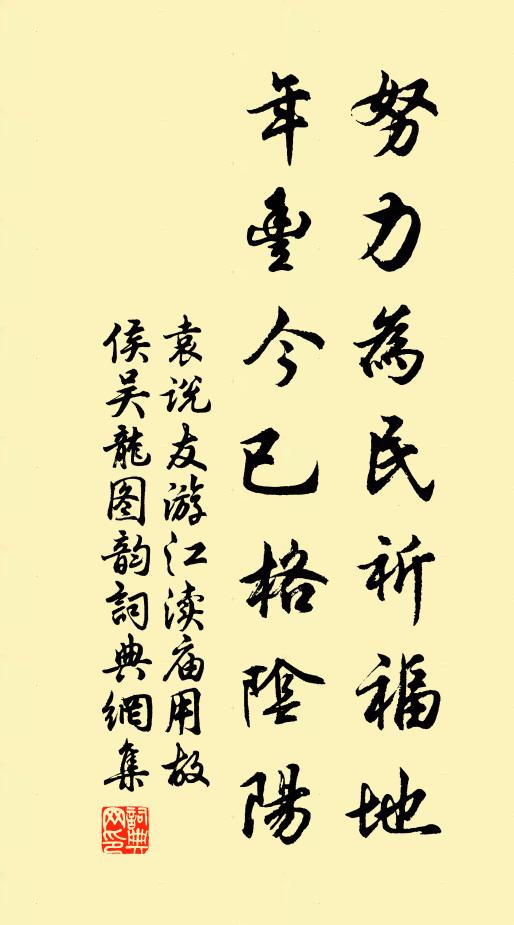 努力為民祈福地
年豐今已格陰陽
袁说友游江渎庙用故
侯吴龍图韵詞典網集
詞典网印